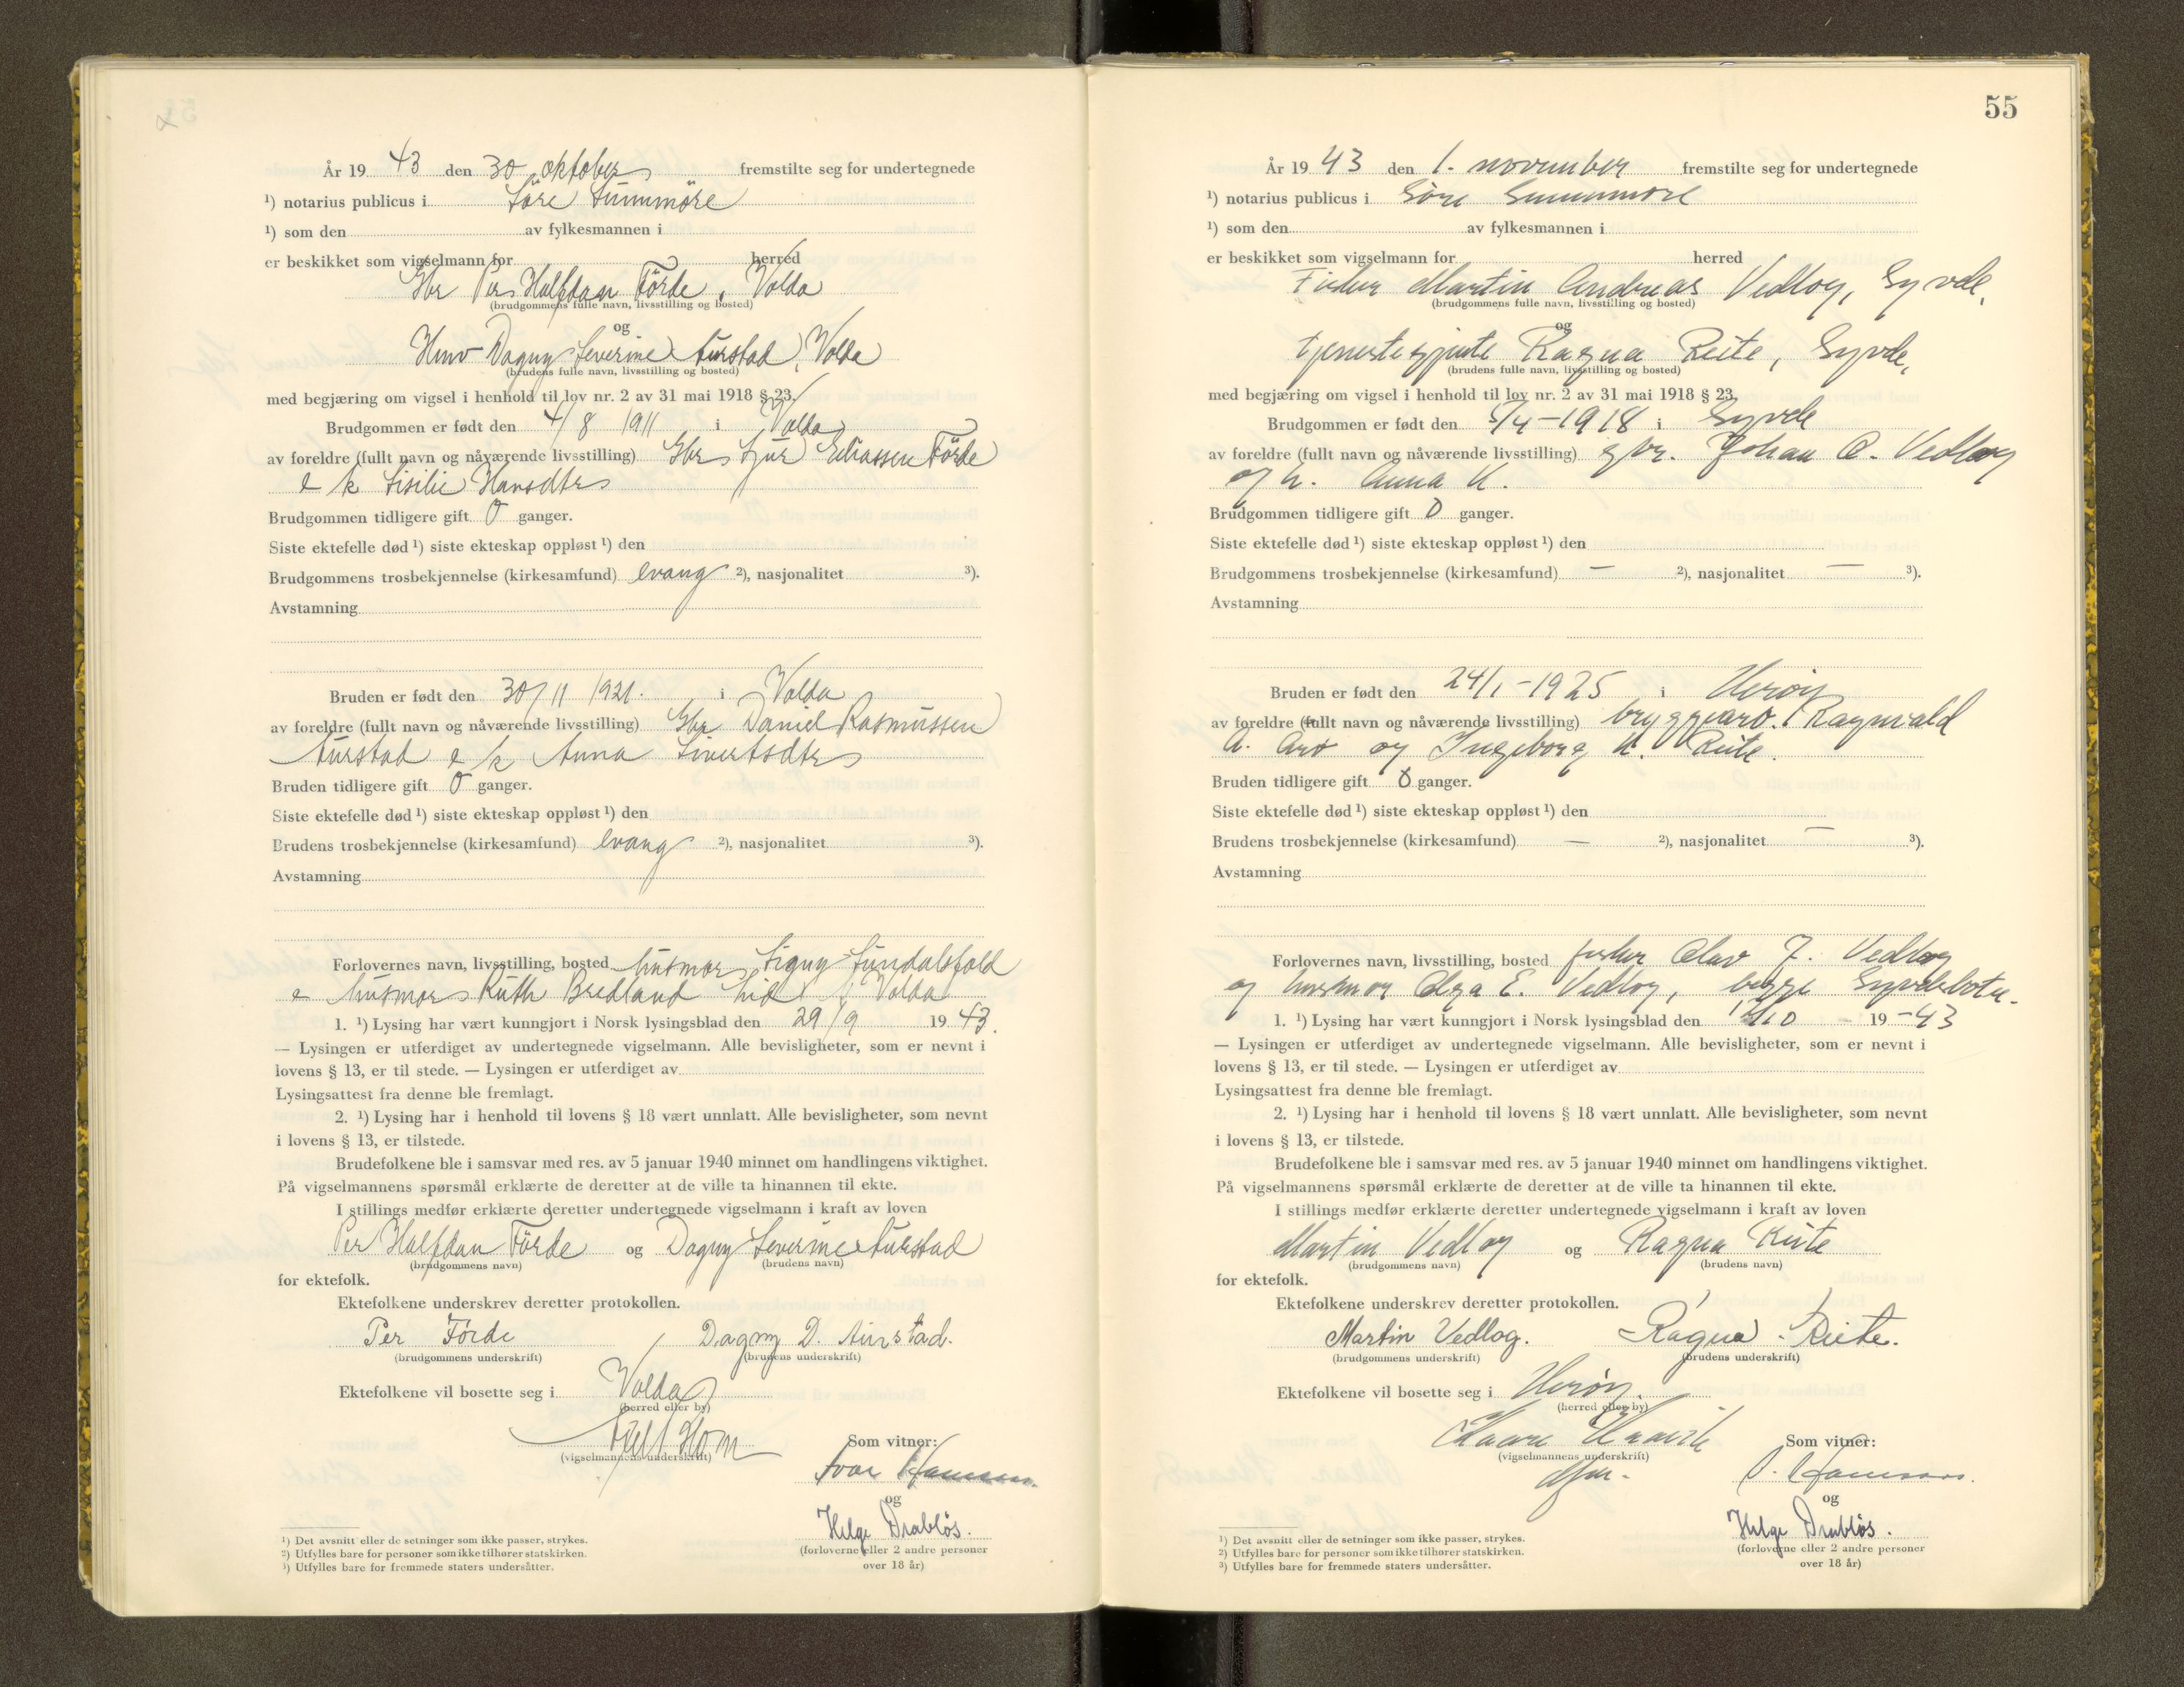 År 19 43 den 30 oktober fremstilte seg for undertegnede
¹) notarius publicus i Söre Sunnmöre
¹) som den av fylkesmannen i
er beskikket som vigselmann for herred
Gbr Per Halfdan Förde, Volda
(brudgommens fulle navn, livsstilling og bosted)
og
Dagny Severine Aurstad, Volda
(brudens fulle navn, livsstilling og bosted)
med begjæring om vigsel i henhold til lov nr. 2 av 31 mai 1918 § 23.
Brudgommen er født den 4/8 1911 i Volda
av foreldre (fullt navn og nåværende livsstilling) Gbr Sjur Eliassen Förde
e k Sisilie Hansdtr
Brudgommen tidligere gift 0 ganger.
Siste ektefelle død ¹) siste ekteskap oppløst ¹) den
Brudgommens trosbekjennelse (kirkesamfund) evang ²), nasjonalitet ³).
Avstamning
Bruden er født den 30/11 1921. i Volda
av foreldre (fullt navn og nåværende livsstilling) Gbr Daniel Rasmussen
Aurstad e k Anna Sivertsdtr
Bruden tidligere gift 0 ganger.
Siste ektefelle død ¹) siste ekteskap oppløst ¹) den
Brudens trosbekjennelse (kirkesamfund) evang ²), nasjonalitet ³).
Avstamning
Forlovernes navn, livsstilling, bosted husmor Signy Sundalsfold
e husmor Ruth Bredland Volda
1. ¹) Lysing har vært kunngjort i Norsk lysingsblad den 29/9 19 43.
— Lysingen er utferdiget av undertegnede vigselmann. Alle bevisligheter, som er nevnt i
lovens § 13, er til stede. — Lysingen er utferdiget av
Lysingsattest fra denne ble fremlagt.
2. ¹) Lysing har i henhold til lovens § 18 vært unnlatt. Alle bevisligheter, som nevnt
i lovens § 13, er tilstede.
Brudefolkene ble i samsvar med res. av 5 januar 1940 minnet om handlingens viktighet.
På vigselmannens spørsmål erklærte de deretter at de ville ta hinannen til ekte.
I stillings medfør erklærte deretter undertegnede vigselmann i kraft av loven
Per Halfdan Förde og Dagny Severine Aurstad
(brudgommens navn) (brudens navn)
for ektefolk.
Ektefolkene underskrev deretter protokollen.
Per Förde Dagny D. Aurstad.
(brudgommens underskrift) (brudens underskrift)
Ektefolkene vil bosette seg i Volda
(herred eller by)
(vigselmannens underskrift)
Som vitner:
Ivar
og
Helge Drabløs.
(forloverne eller 2 andre personer
over 18 år)
¹) Det avsnitt eller de setninger som ikke passer, strykes.
²) Utfylles bare for personer som ikke tilhører statskirken.
³) Utfylles bare for fremmede staters undersåtter.
55
År 19 43 den 1. november fremstilte seg for undertegnede
¹) notarius publicus i Søre Sunnmøre
¹) som den av fylkesmannen i
er beskikket som vigselmann for herred
Fisker Martin Andreas Vedlog, Syvde,
(brudgommens fulle navn, livsstilling og bosted)
og
tjenestegjente Ragna Reite, Syvde,
(brudens fulle navn, livsstilling og bosted)
med begjæring om vigsel i henhold til lov nr. 2 av 31 mai 1918 § 23.
Brudgommen er født den 5/4-1918 i Syvde
av foreldre (fullt navn og nåværende livsstilling) gbr. Johan O. Vedlog
og h. Anna K.
Brudgommen tidligere gift 0 ganger.
Siste ektefelle død ¹) siste ekteskap oppløst ¹) den
Brudgommens trosbekjennelse (kirkesamfund) — ²), nasjonalitet — ³).
Avstamning
Bruden er født den 24/1-1925 i Herøy
av foreldre (fullt navn og nåværende livsstilling) bryggearb. Ragnvald
A. Arø og Ingeborg K. Reite.
Bruden tidligere gift 0 ganger.
Siste ektefelle død ¹) siste ekteskap oppløst ¹) den
Brudens trosbekjennelse (kirkesamfund) — ²), nasjonalitet — ³).
Avstamning
Forlovernes navn, livsstilling, bosted fisker Olav J. Vedlog
og husmor Olga E. Vedlog, begge Syvdebotn.
1. ¹) Lysing har vært kunngjort i Norsk lysingsblad den 19 -43
— Lysingen er utferdiget av undertegnede vigselmann. Alle bevisligheter, som er nevnt i
lovens § 13, er til stede. — Lysingen er utferdiget av
Lysingsattest fra denne ble fremlagt.
2. ¹) Lysing har i henhold til lovens § 18 vært unnlatt. Alle bevisligheter, som nevnt
i lovens § 13, er tilstede.
Brudefolkene ble i samsvar med res. av 5 januar 1940 minnet om handlingens viktighet.
På vigselmannens spørsmål erklærte de deretter at de ville ta hinannen til ekte.
I stillings medfør erklærte deretter undertegnede vigselmann i kraft av loven
Martin Vedlog og Ragna Reite
(brudgommens navn) (brudens navn)
for ektefolk.
Ektefolkene underskrev deretter protokollen.
Martin Vedlog. Ragna Reite.
(brudgommens underskrift) (brudens underskrift)
Ektefolkene vil bosette seg i Herøy.
(herred eller by)
(vigselmannens underskrift)
Som vitner:
og
Helge Drabløs.
(forloverne eller 2 andre personer
over 18 år)
¹) Det avsnitt eller de setninger som ikke passer, strykes.
²) Utfylles bare for personer som ikke tilhører statskirken.
³) Utfylles bare for fremmede staters undersåtter.